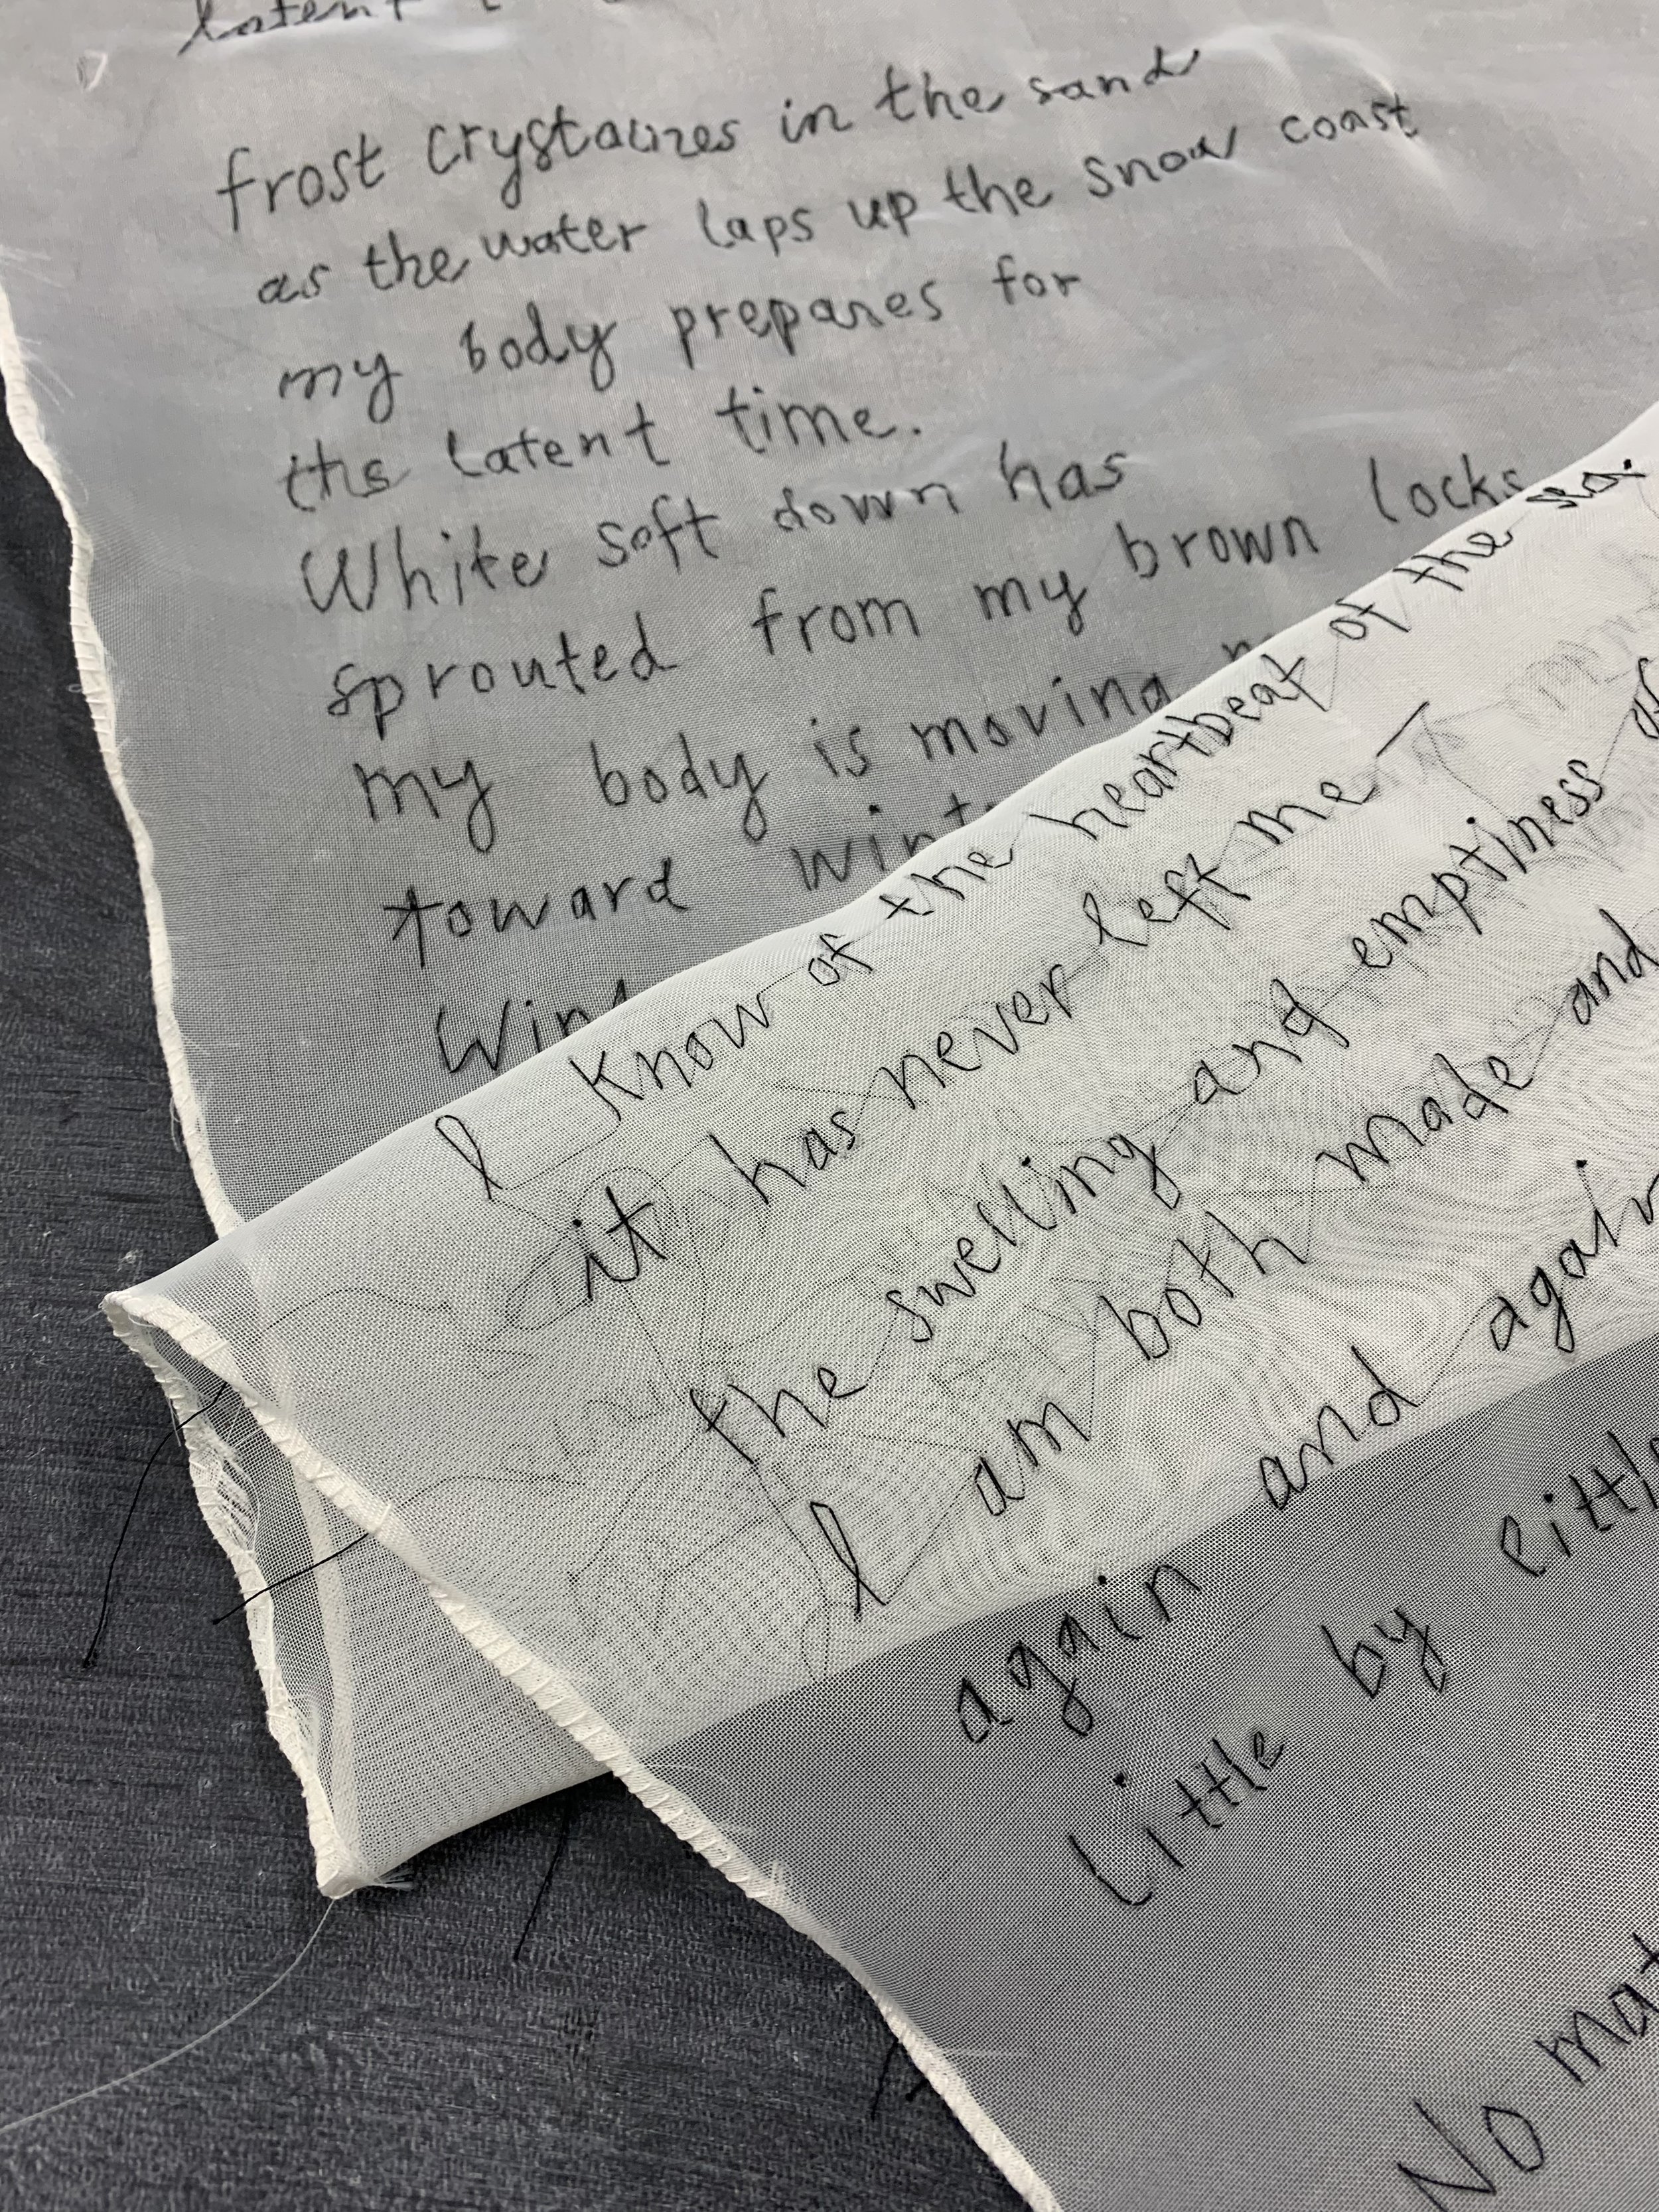 latent
frost crystalizes in the sand
as the water laps up the snow coast
my body prepares for
the latent time.
White soft down has
sprouted from my brown locks
my body is moving
toward
I know of the heartbeat of the sea.
it has never left me —
the swelling and emptiness
I am both made and
again and again
little by little
No